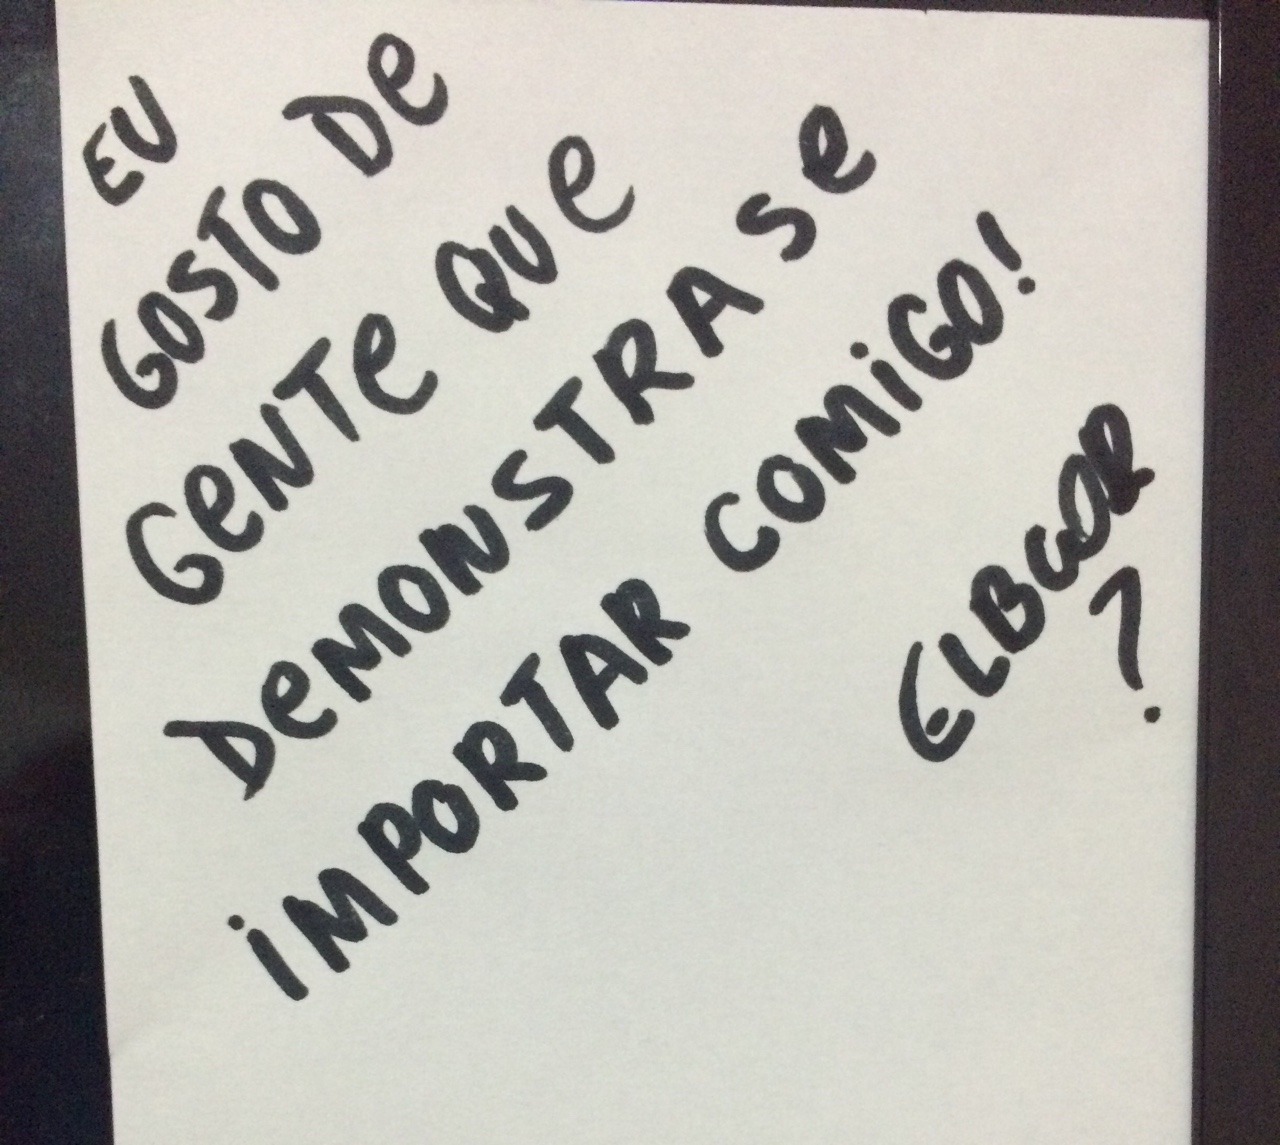 EU
GOSTO De
GeNTe QUe
DeMONSTRA Se
iMPORTAR COMiGO!
ELBGOR
?